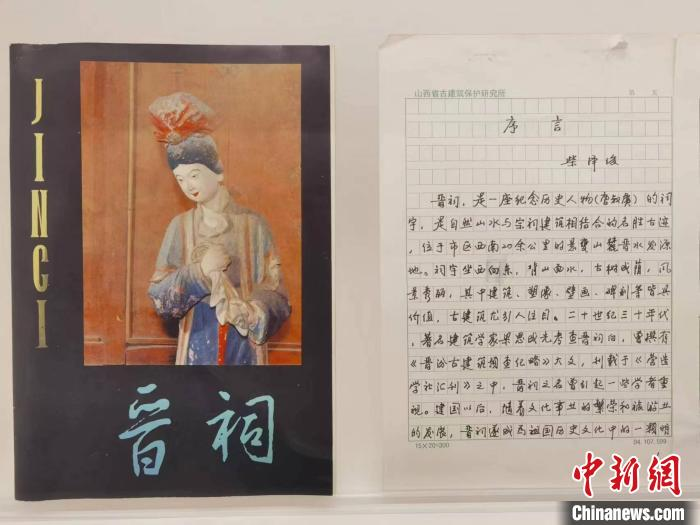 JINCI
晋祠
山西省古建筑保护研究所 第 页
序言
柴泽俊
晋祠，是一座纪念历史人物(唐叔虞)的祠
宇，是自然山水与宗祠建筑相结合的名胜古迹，
位于市区西南20余公里的悬瓮山麓晋水发源
地。祠宇坐西向东，背山面水，古树成荫，风
景秀丽，其中建筑、塑像、壁画、碑刻等皆具
价值，古建筑尤引人注目。二十世纪三十年代，
著名建筑学家梁思成先生考查晋祠后，曾撰有
《晋汾古建筑预查纪略》大文，刊载于《营造
学社汇刊》之中，晋祠之名曾引起一些学者重
视。建国以后，随着文化事业的繁荣和旅游业
的发展，晋祠遂成为祖国历史文化中的一颗明
15×20=300 94.107.599
中新网
www.chinanews.com